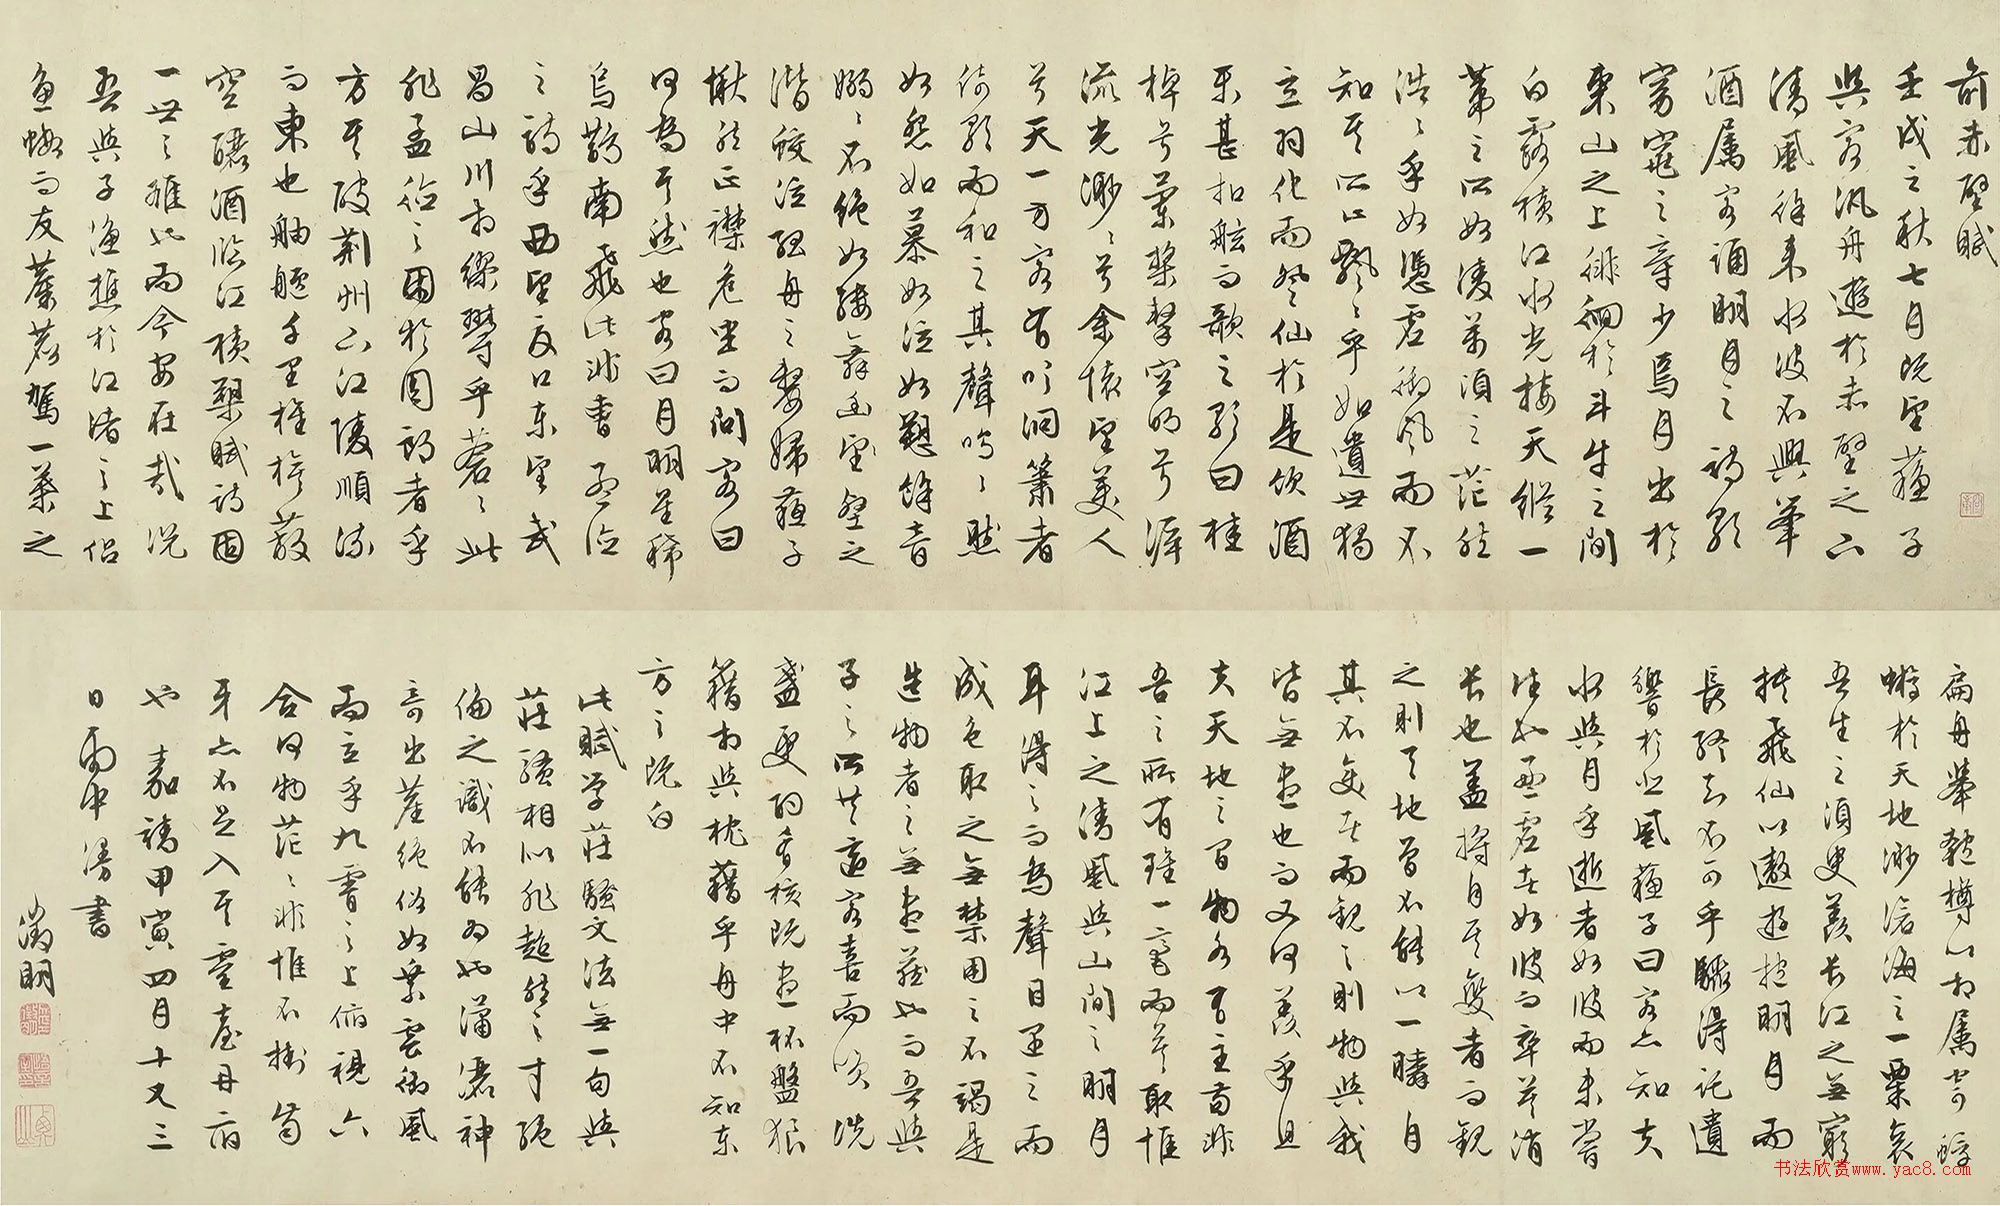 前赤壁賦
壬戌之秋七月既望蘇子
與客汎舟遊於赤壁之下
清風徐來水波不興舉
酒属客誦明月之詩歌
窈窕之章少焉月出於
東山之上徘徊於斗牛之間
白露橫江水光接天縱一
葦之所如凌萬頃之茫然
浩〻乎如憑虛御風而不
知其所止飄〻乎如遺世獨
立羽化而登仙於是飲酒
樂甚扣舷而歌之歌曰桂
棹兮蘭槳擊空明兮溯
流光渺〻兮余懷望美人
兮天一方客有吹洞簫者
倚歌而和之其聲嗚〻然
如怨如慕如泣如愬餘音
嫋〻不絕如縷舞幽壑之
潛蛟泣孤舟之嫠婦蘇子
愀然正襟危坐而問客曰
何為其然也客曰月明星稀
烏鵲南飛此非曹孟德
之詩乎西望夏口東望武
昌山川相繆鬱乎蒼〻此
非孟德之困於周郎者乎
方其破荊州下江陵順流
而東也舳艫千里旌旗蔽
空釃酒臨江橫槊賦詩固
一世之雄也而今安在哉況
吾與子漁樵於江渚之上侶
魚蝦而友麋鹿駕一葉之
扁舟舉匏樽以相属寄蜉
蝣於天地渺滄海之一粟哀
吾生之須臾羨長江之無窮
挾飛仙以遨遊抱明月而
長終知不可乎驟得託遺
響於悲風蘇子曰客亦知夫
水與月乎逝者如彼而未嘗
往也盈虛者如彼而卒莫消
長也蓋將自其變者而觀
之則天地曾不能以一瞬自
其不變者而觀之則物與我
皆無盡也而又何羨乎且
夫天地之間物各有主苟非
吾之所有雖一毫而莫取惟
江上之清風與山間之明月
耳得之而為聲目遇之而
成色取之無禁用之不竭是
造物者之無盡藏也而吾與
子之所共適客喜而笑洗
盞更酌肴核既盡杯盤狼
籍相與枕藉乎舟中不知東
方之既白
此賦學莊騷文法無一句與
莊騷相似非超然之才絕
倫之識不能為也瀟灑神
奇出塵絕俗如乘雲御風
而立乎九霄之上俯視六
合何物茫〻非惟不掛齒
牙亦不足入其靈臺丹府
也 嘉靖甲寅四月十又三
日雨中漫書
徵明
书法欣赏www.yac8.com